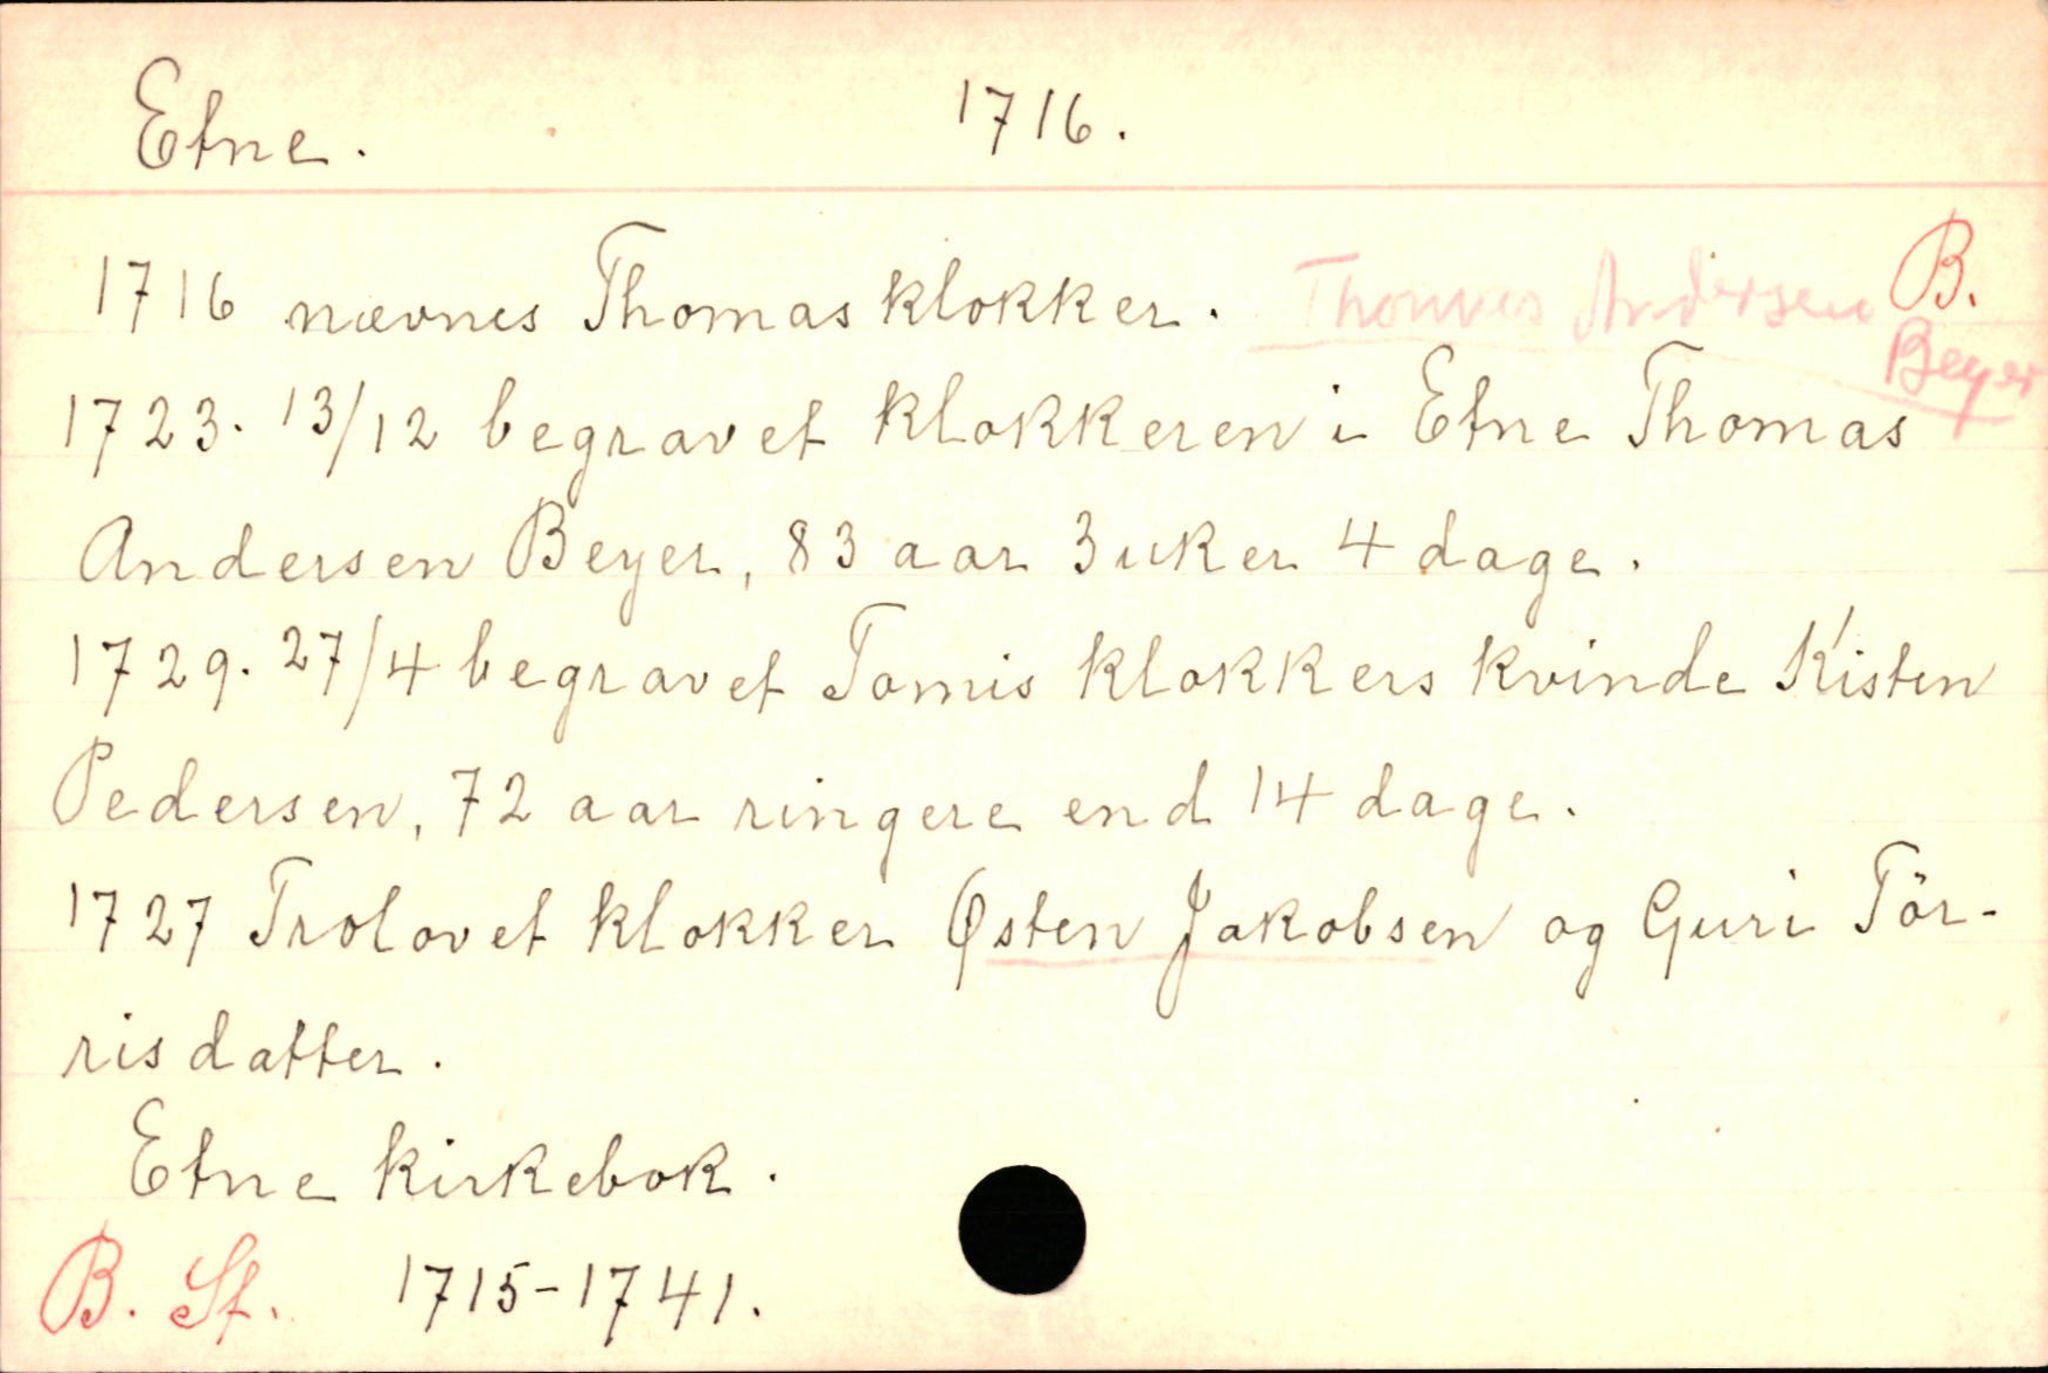 Etne. 1716.
B.
1716 nævnes Thomas klokker. Thomas Andersen
Beyer
1723. 13/12 begravet klokkeren i Etne Thomas
Andersen Beyer, 83 aar 3 uker 4 dage.
1729. 27/4 begravet Tomis klokkers kvinde Kisten
Pedersen, 72 aar ringere end 14 dage.
1727 Trolovet klokker Østen Jakobsen og Guri Tör-
risdatter.
Etne kirkebok.
B. St. 1715-1741.